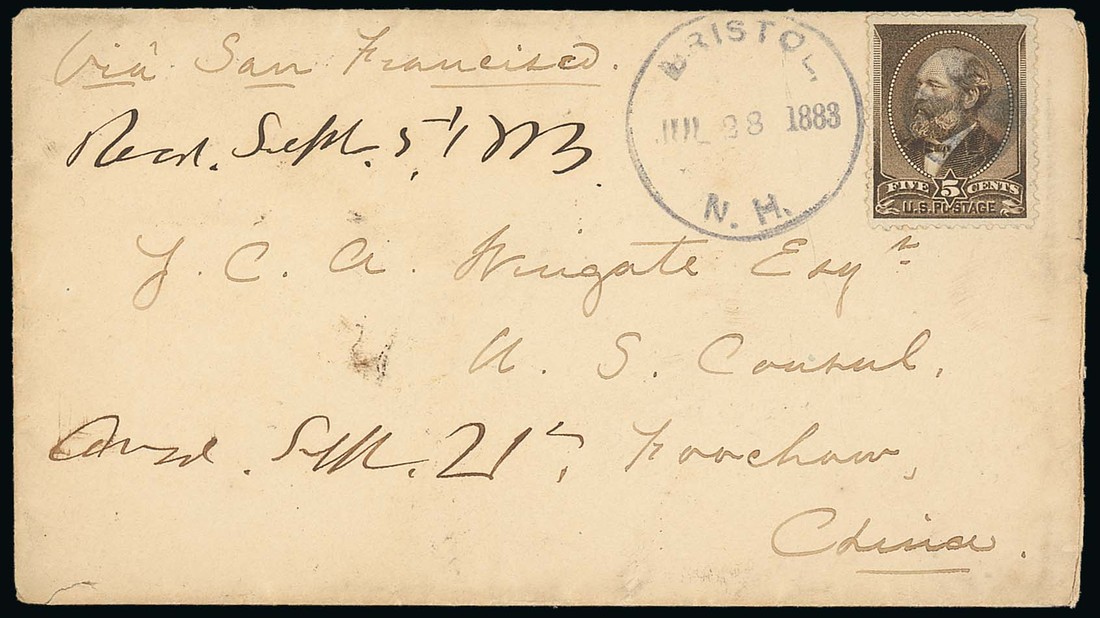 Via San Francisco.
BRISTOL
JUL 28 1883
N. H.
FIVE 5 CENTS
U.S. POSTAGE
Recd. Sept. 5th/83.
J. C. A. Wingate Esqr
U. S. Consul,
Ansd. Sept. 21st,
Foochow,
China.